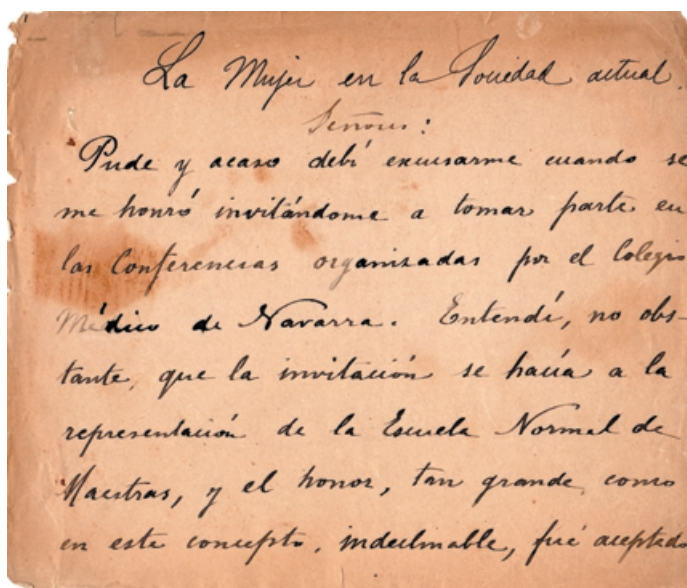 La Mujer en la Sociedad actual.
Señores:
Pude y acaso debí excusarme cuando se
me honró invitándome a tomar parte en
las Conferencias organizadas por el Colegio
Médico de Navarra. Entendí, no obs-
tante, que la invitación se hacía a la
representación de la Escuela Normal de
Maestras, y el honor, tan grande, como
en este concepto, indeclinable, fué aceptado